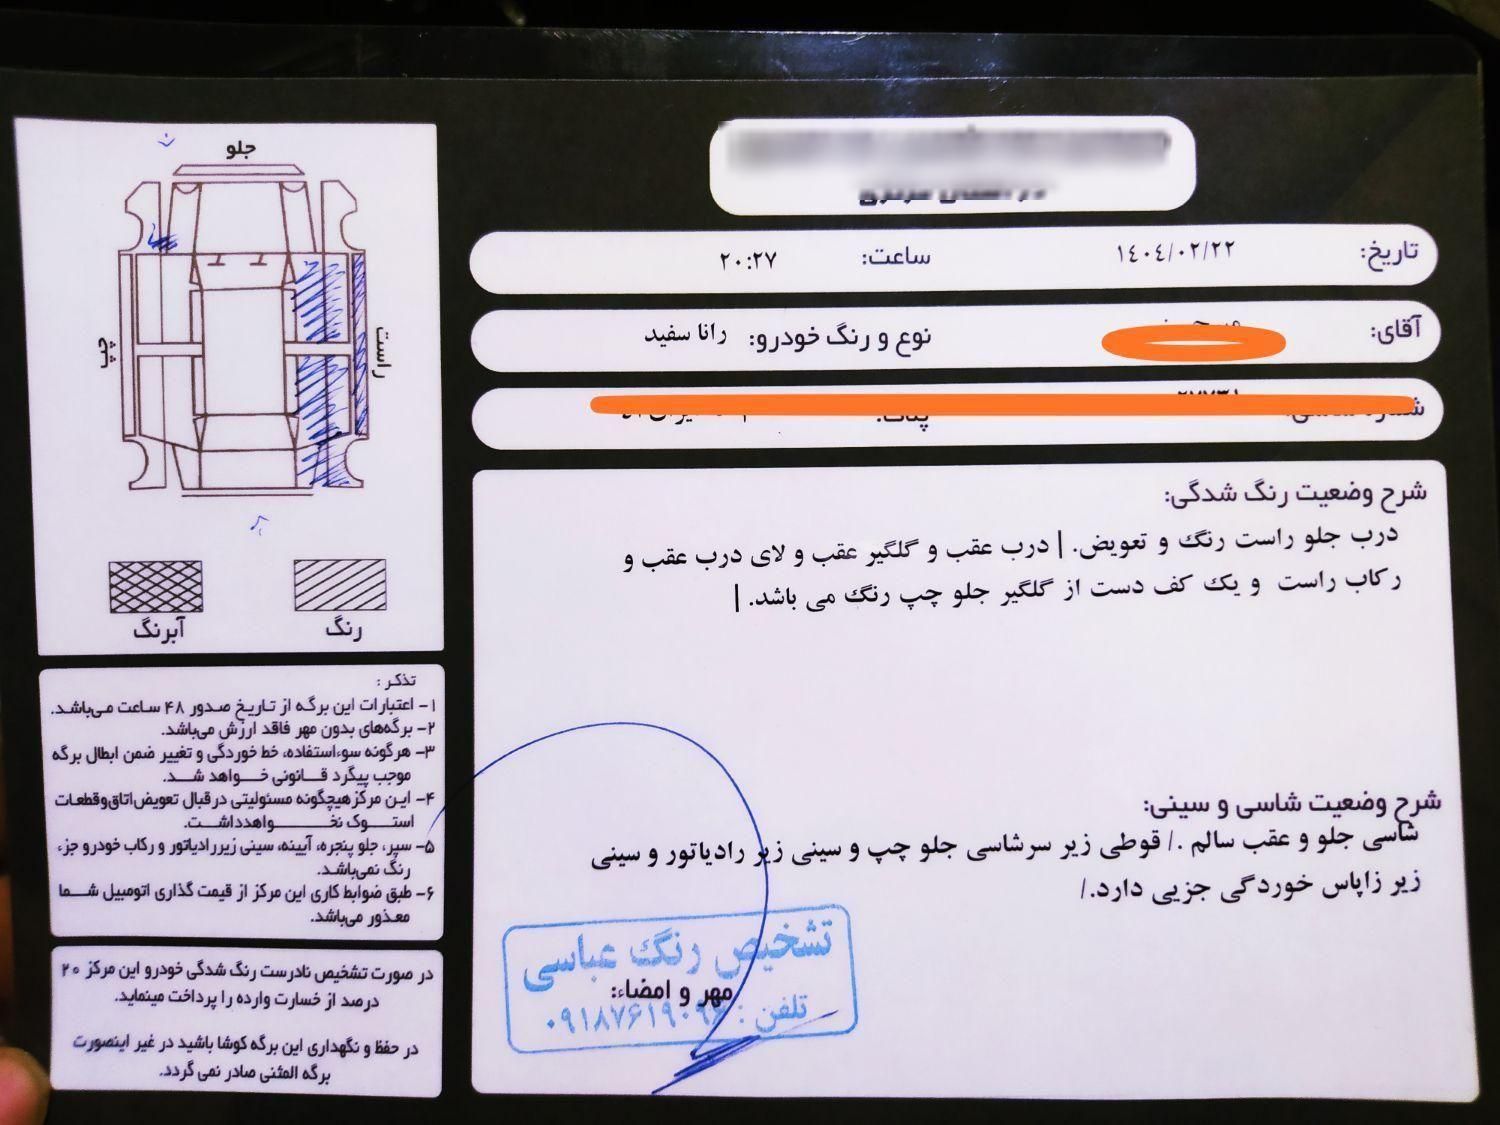 جلو
راست
چپ
رنگ
آبرنگ
تاریخ: ۱۴۰۴/۰۲/۲۲ ساعت: ۲۰:۲۷
آقای: نوع و رنگ خودرو: رانا سفید
شرح وضعیت رنگ شدگی:
درب جلو راست رنگ و تعویض. | درب عقب و گلگیر عقب و لای درب عقب و
رکاب راست و یک کف دست از گلگیر جلو چپ رنگ می باشد. |
شرح وضعیت شاسی و سینی:
شاسی جلو و عقب سالم ./ قوطی زیر سرشاسی جلو چپ و سینی زیر رادیاتور و سینی
زیر زاپاس خوردگی جزیی دارد./
تشخیص رنگ عباسی
مهر و امضاء:
تلفن : ۰۹۱۸۷۶۱۹۰۹۶
تذکر :
۱- اعتبارات این برگه از تاریخ صدور ۴۸ ساعت می‌باشد.
۲- برگه‌های بدون مهر فاقد ارزش می‌باشد.
۳- هرگونه سوءاستفاده، خط خوردگی و تغییر ضمن ابطال برگه
موجب پیگرد قانونی خواهد شد.
۴- این مرکز هیچگونه مسئولیتی در قبال تعویض اتاق و قطعات
استوک نخواهد داشت.
۵- سپر، جلو پنجره، آیینه، سینی زیر رادیاتور و رکاب خودرو جزء
رنگ نمی‌باشد.
۶- طبق ضوابط کاری این مرکز از قیمت گذاری اتومبیل شما
معذور می‌باشد.
در صورت تشخیص نادرست رنگ شدگی خودرو این مرکز ۲۰
درصد از خسارت وارده را پرداخت مینماید.
در حفظ و نگهداری این برگه کوشا باشید در غیر اینصورت
برگه المثنی صادر نمی گردد.